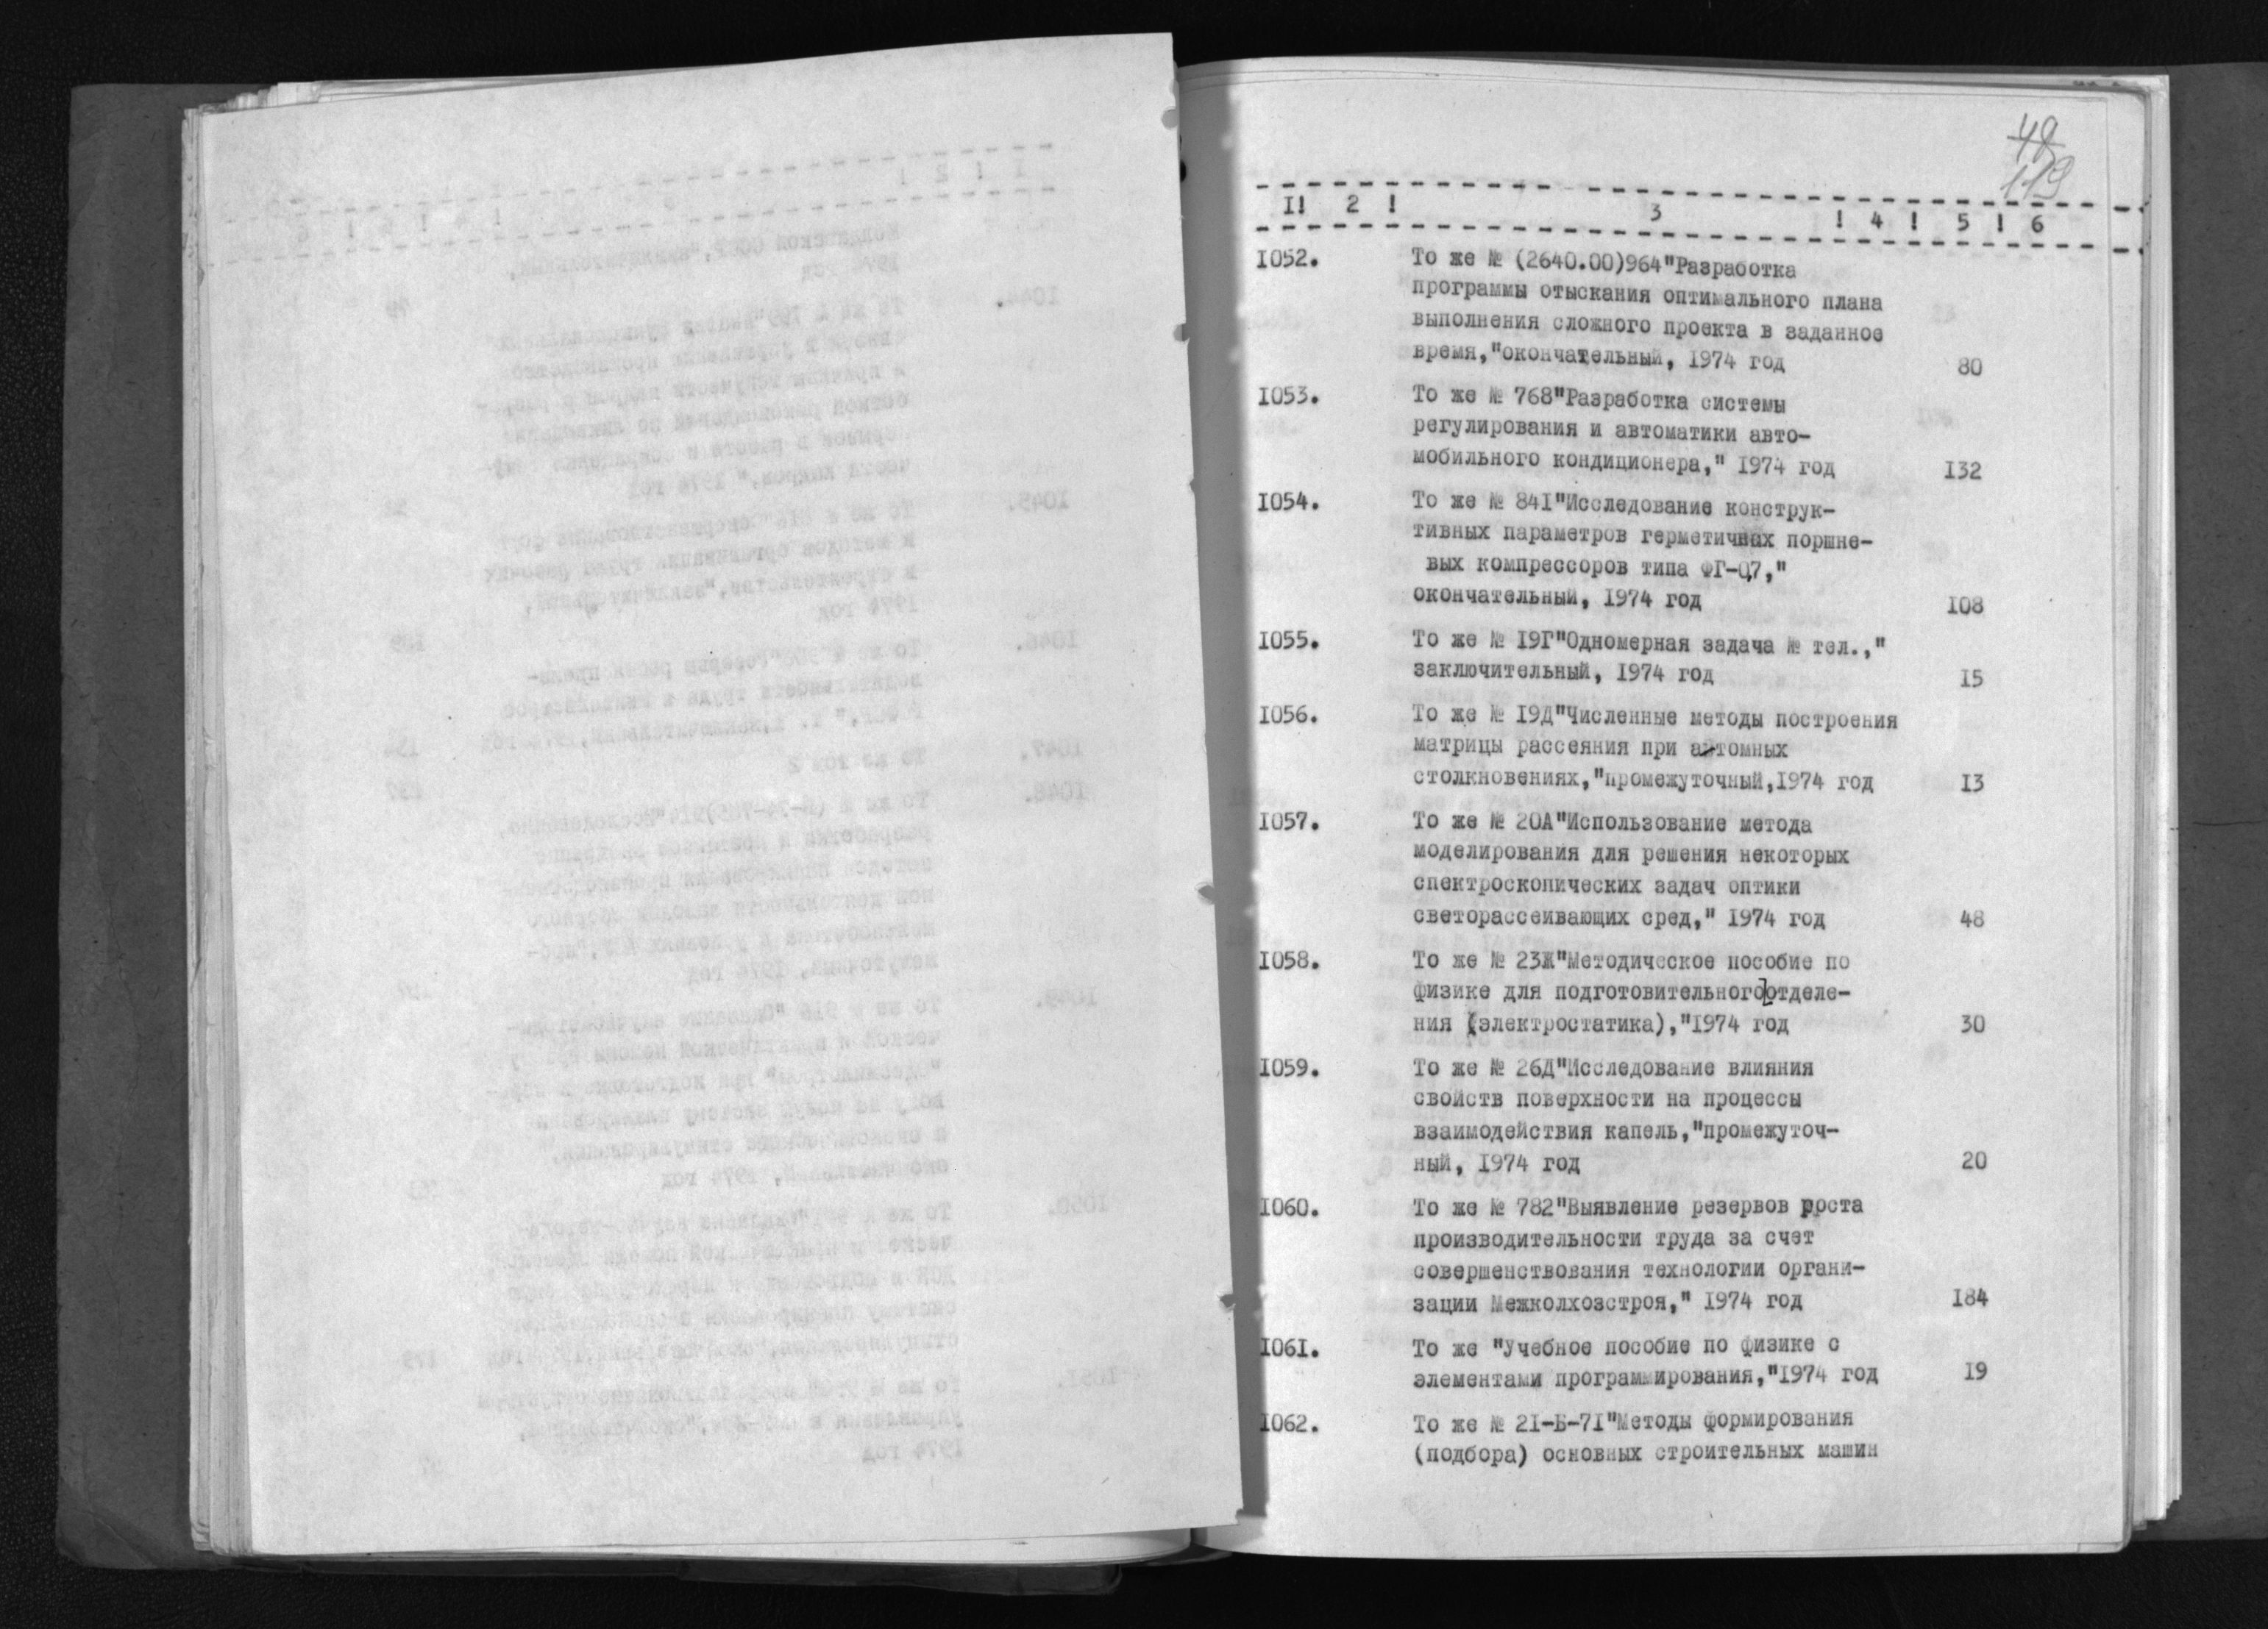 48
119
I! 2 ! 3 ! 4 ! 5 ! 6
I052. То же № (2640.00)964"Разработка
программы отыскания оптимального плана
выполнения сложного проекта в заданное
время,"окончательный, I974 год 80
I053. То же № 768"Разработка системы
регулирования и автоматики авто-
мобильного кондиционера," I974 год I32
I054. То же № 84I"Исследование конструк-
тивных параметров герметичных поршне-
вых компрессоров типа ФГ-0,7,"
окончательный, I974 год I08
I055. То же № I9Г"Одномерная задача № тел.,"
заключительный, I974 год I5
I056. То же № I9Д"Численные методы построения
матрицы рассеяния при атомных
столкновениях,"промежуточный,I974 год I3
I057. То же № 20А"Использование метода
моделирования для решения некоторых
спектроскопических задач оптики
светорассеивающих сред," I974 год 48
I058. То же № 23Ж"Методическое пособие по
физике для подготовительного отделе-
ния (электростатика),"I974 год 30
I059. То же № 26Д"Исследование влияния
свойств поверхности на процессы
взаимодействия капель,"промежуточ-
ный, I974 год 20
I060. То же № 782"Выявление резервов роста
производительности труда за счет
совершенствования технологии органи-
зации Межколхозстроя," I974 год I84
I061. То же "Учебное пособие по физике с
элементами программирования,"I974 год I9
I062. То же № 2I-Б-7I"Методы формирования
(подбора) основных строительных машин